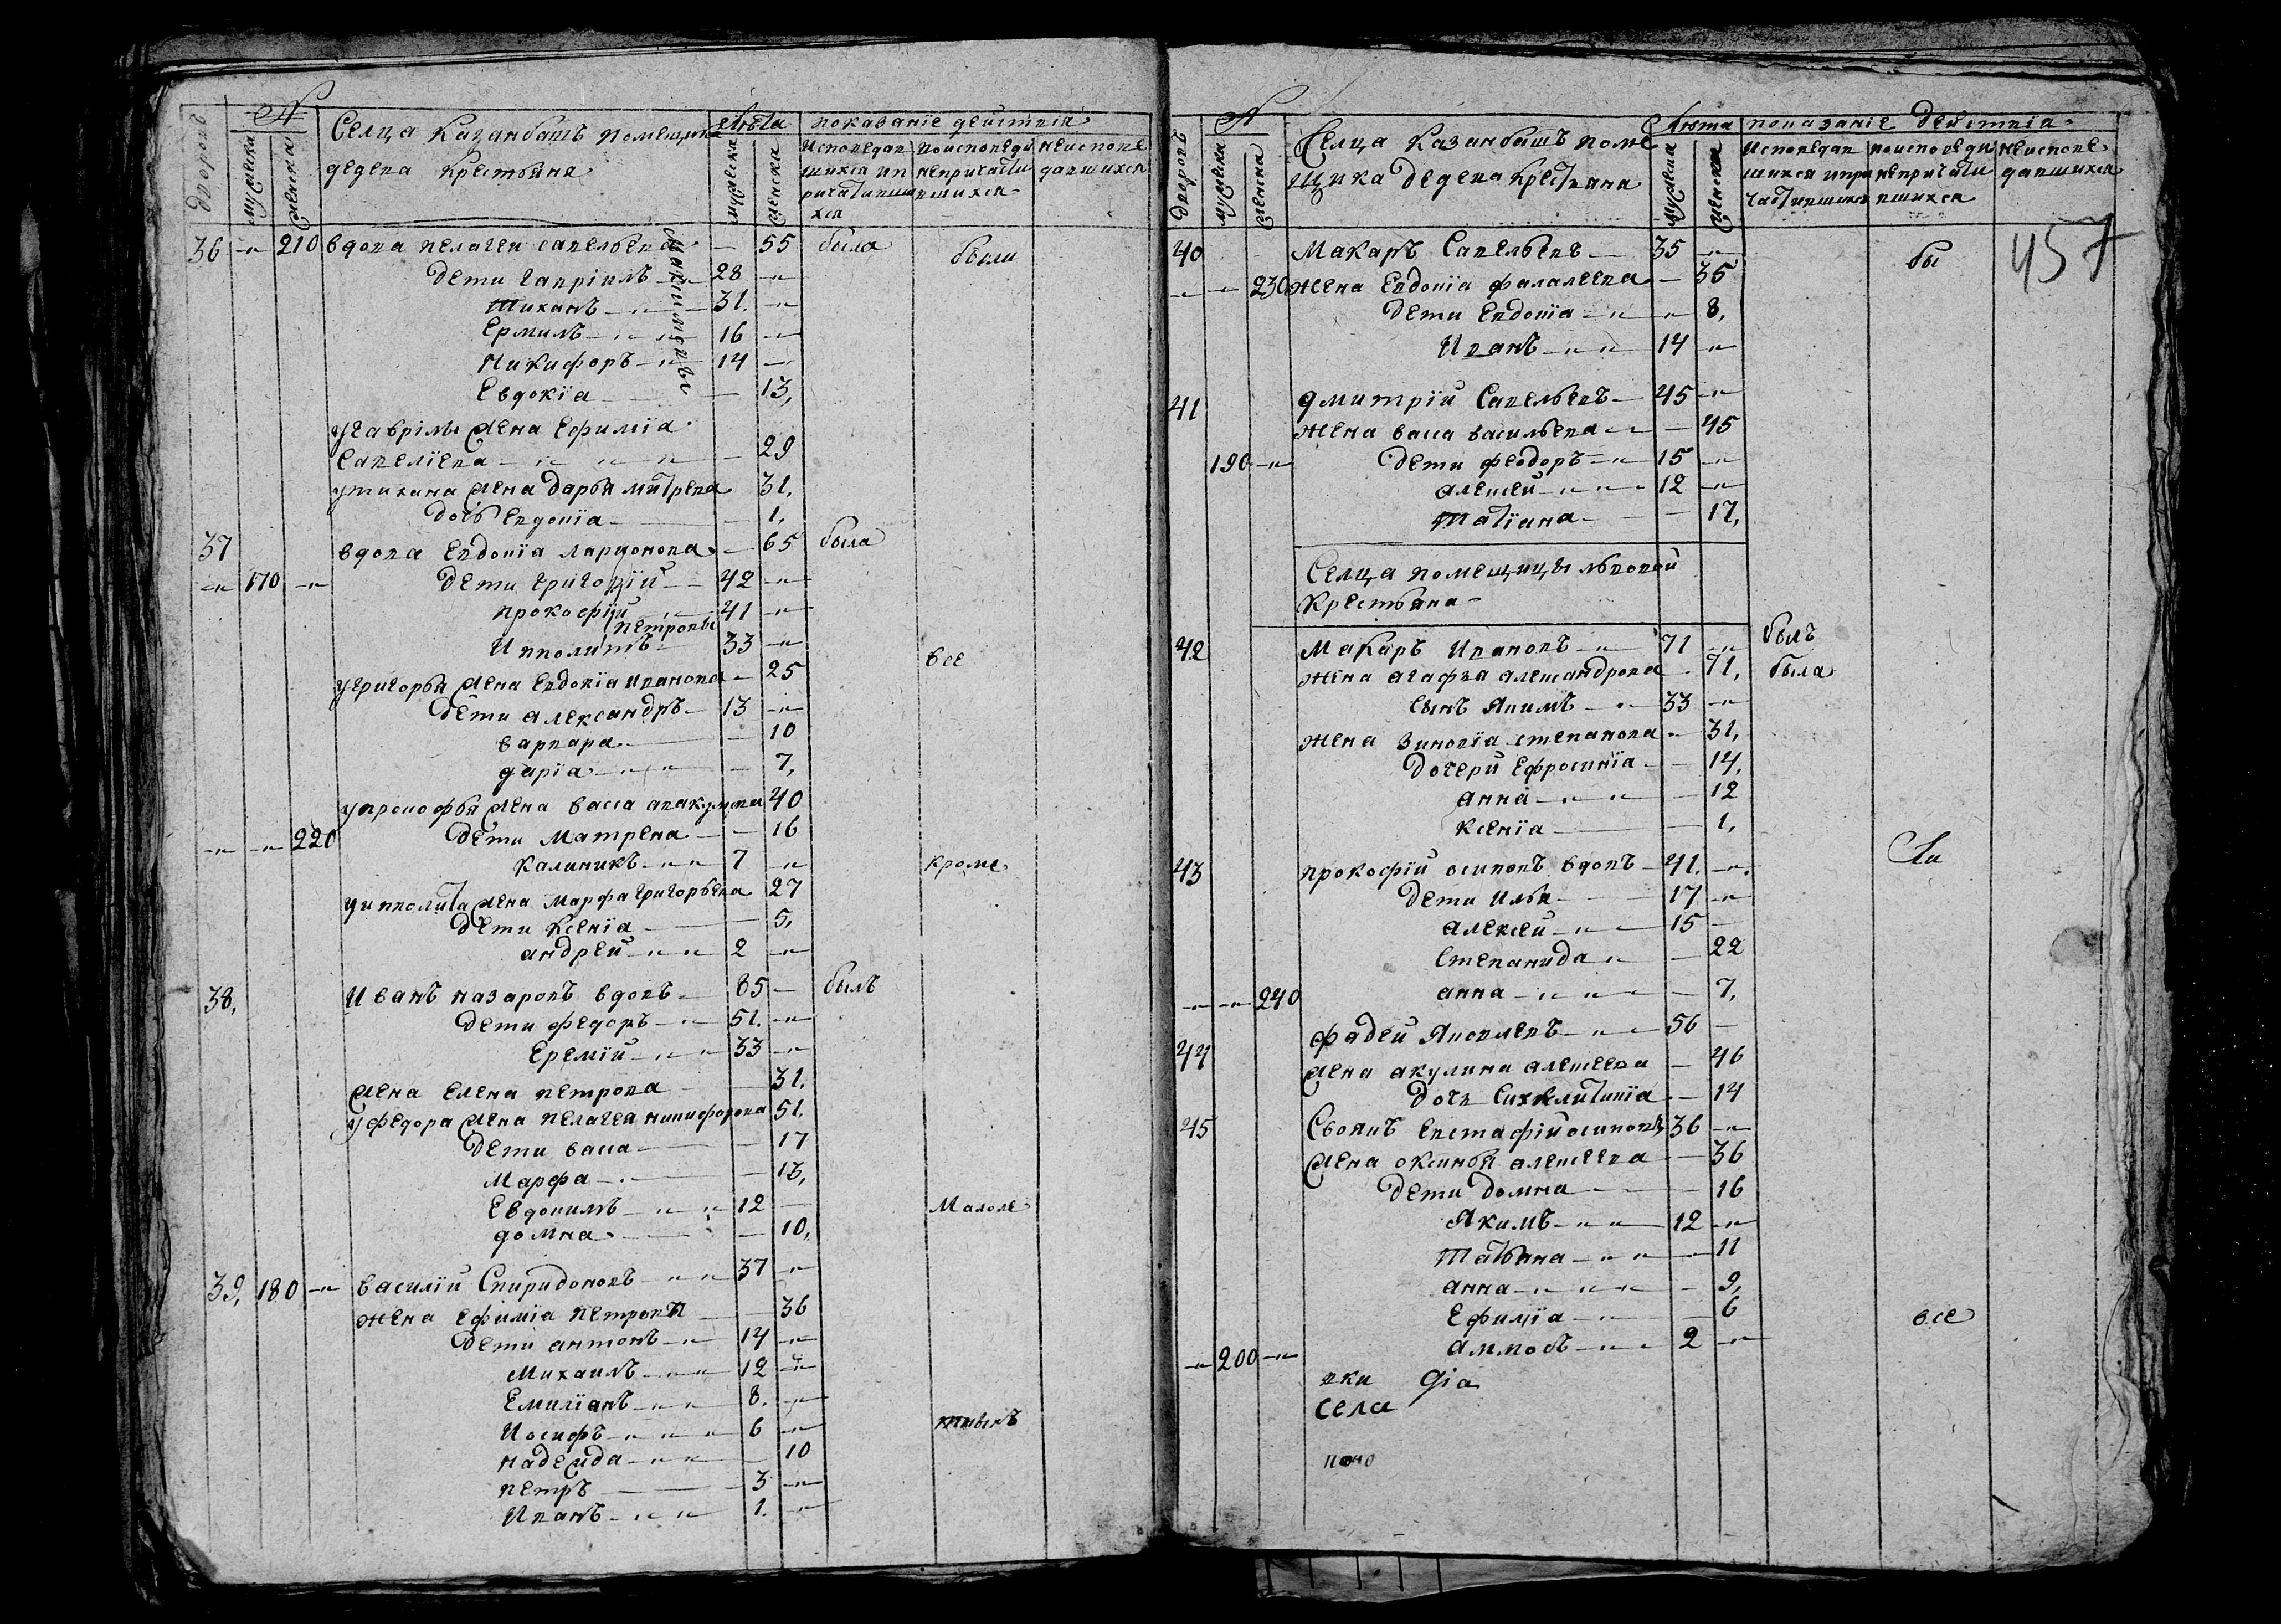 №
Лѣта
показанiе действiя
дворовъ
мужеска
женска
Селца Казанбашъ помещика
дедева крестьяня
мужеска
женска
Исповедав
шихся ип
ричастивши
хся
поисповеди
непричасти
вшихся
неисповe
давшихся
36 —"— 210 вдова пелагея савельева — 55 была были
Максимовы
дети гаврiилъ —"— 28 —"—
Тиханъ —"— 31. —"—
Ермилъ —"— 16 —"—
Никифоръ —"— 14 —
Евдокiа — 13,
угаврiлы жена Ефимiа
Савелiева —"— 29
утихана жена дарья митрева 31,
дочь Евдокiа — 1,
37 вдова Евдокiа ларионова — 65 была
—"— 170 —"— дети григорiй — 42 —"—
прокофiй —"— 41 —"—
петровы
Ипполитъ — 33 —"—
все
угригорья жена Евдокiа иванова — 25
дети александръ — 13 —"—
варвара — 10
дарiа —"— 7,
упрокофья жена васса авакумова 40
—"— —"— 220 дети матрена — 16
калиникъ —"— 7 —"— кроме
уипполита жена марфа григорьева 27
дети ксенiа — 5,
андрей —"— 2 —"—
38, Иванъ назаровъ вдовъ — 85 — былъ
дети федоръ —"— 51. —"—
Еремiй —"— 33 —"—
жена елена петрова — 31.
уфедора жена пелагея никифорова 51.
дети васса — 17
марфа — 13,
Евдокимъ —"— 12 — Малоле
домна — 10,
39, 180 —"— василiй Спиридоновъ —"— 37 —"—
жена ефимiа петрова — 36
дети антонъ —"— 14 —"—
михаилъ —"— 12 —"—
Емилiанъ —"— 8. —"—
Иосифъ —"— 6 —"—
надежда —"— 10
петръ — 3 —"—
Иванъ —"— 1. —"—
№
Лѣта
показанiе действiя
дворовъ
мужеска
женска
Селца Казанбашъ поме
щика дедева крестьяна
мужеска
женска
Исповедав
шихся ипри
частившихся
поисповеди
непричасти
вшихся
неисповe
давшихся
457
40 Макаръ Савельевъ — 35 —"— бы
—"— —"— 230 жена Евдокiа фалалеева — 35
дети Евдокiа —"— 8,
Иванъ —"— 14 —"—
41 дмитрiй Савельевъ — 45 —"—
жена васса васильева — 45
190 —"— дети феодоръ —"— 15 —"—
алексей —"— 12 —"—
татiана — 17,
Селца помещицы львовой
Крестьяна
42 Макаръ Ивановъ —"— 71 —"— былъ
жена агафья александрова — 71, была
сынъ Якимъ —"— 33 —"—
жена зиновiа степанова — 31,
дочери ефросинiа — 14,
анна —"— 12
ксенiа — 1,
43 прокофiй осиповъ вдовъ — 41. —"—
дети илья — 17 —"—
алексей —"— 15 —
степанида —"— 22
—"— —"— 240 анна —"— 7,
44 фадей Яковлевъ —"— 56 —
жена акулина алексеева — 46
45 Своякъ евстафiй осиповъ 36 —"—
жена оксинья алексеева — 36
дети домна — 16
Якимъ —"— 12 —"—
татьяна —"— 11
анна —"— 9,
Ефимiа —"— 6 все
—"— 200 —"— аммосъ —"— 2 —"—
села